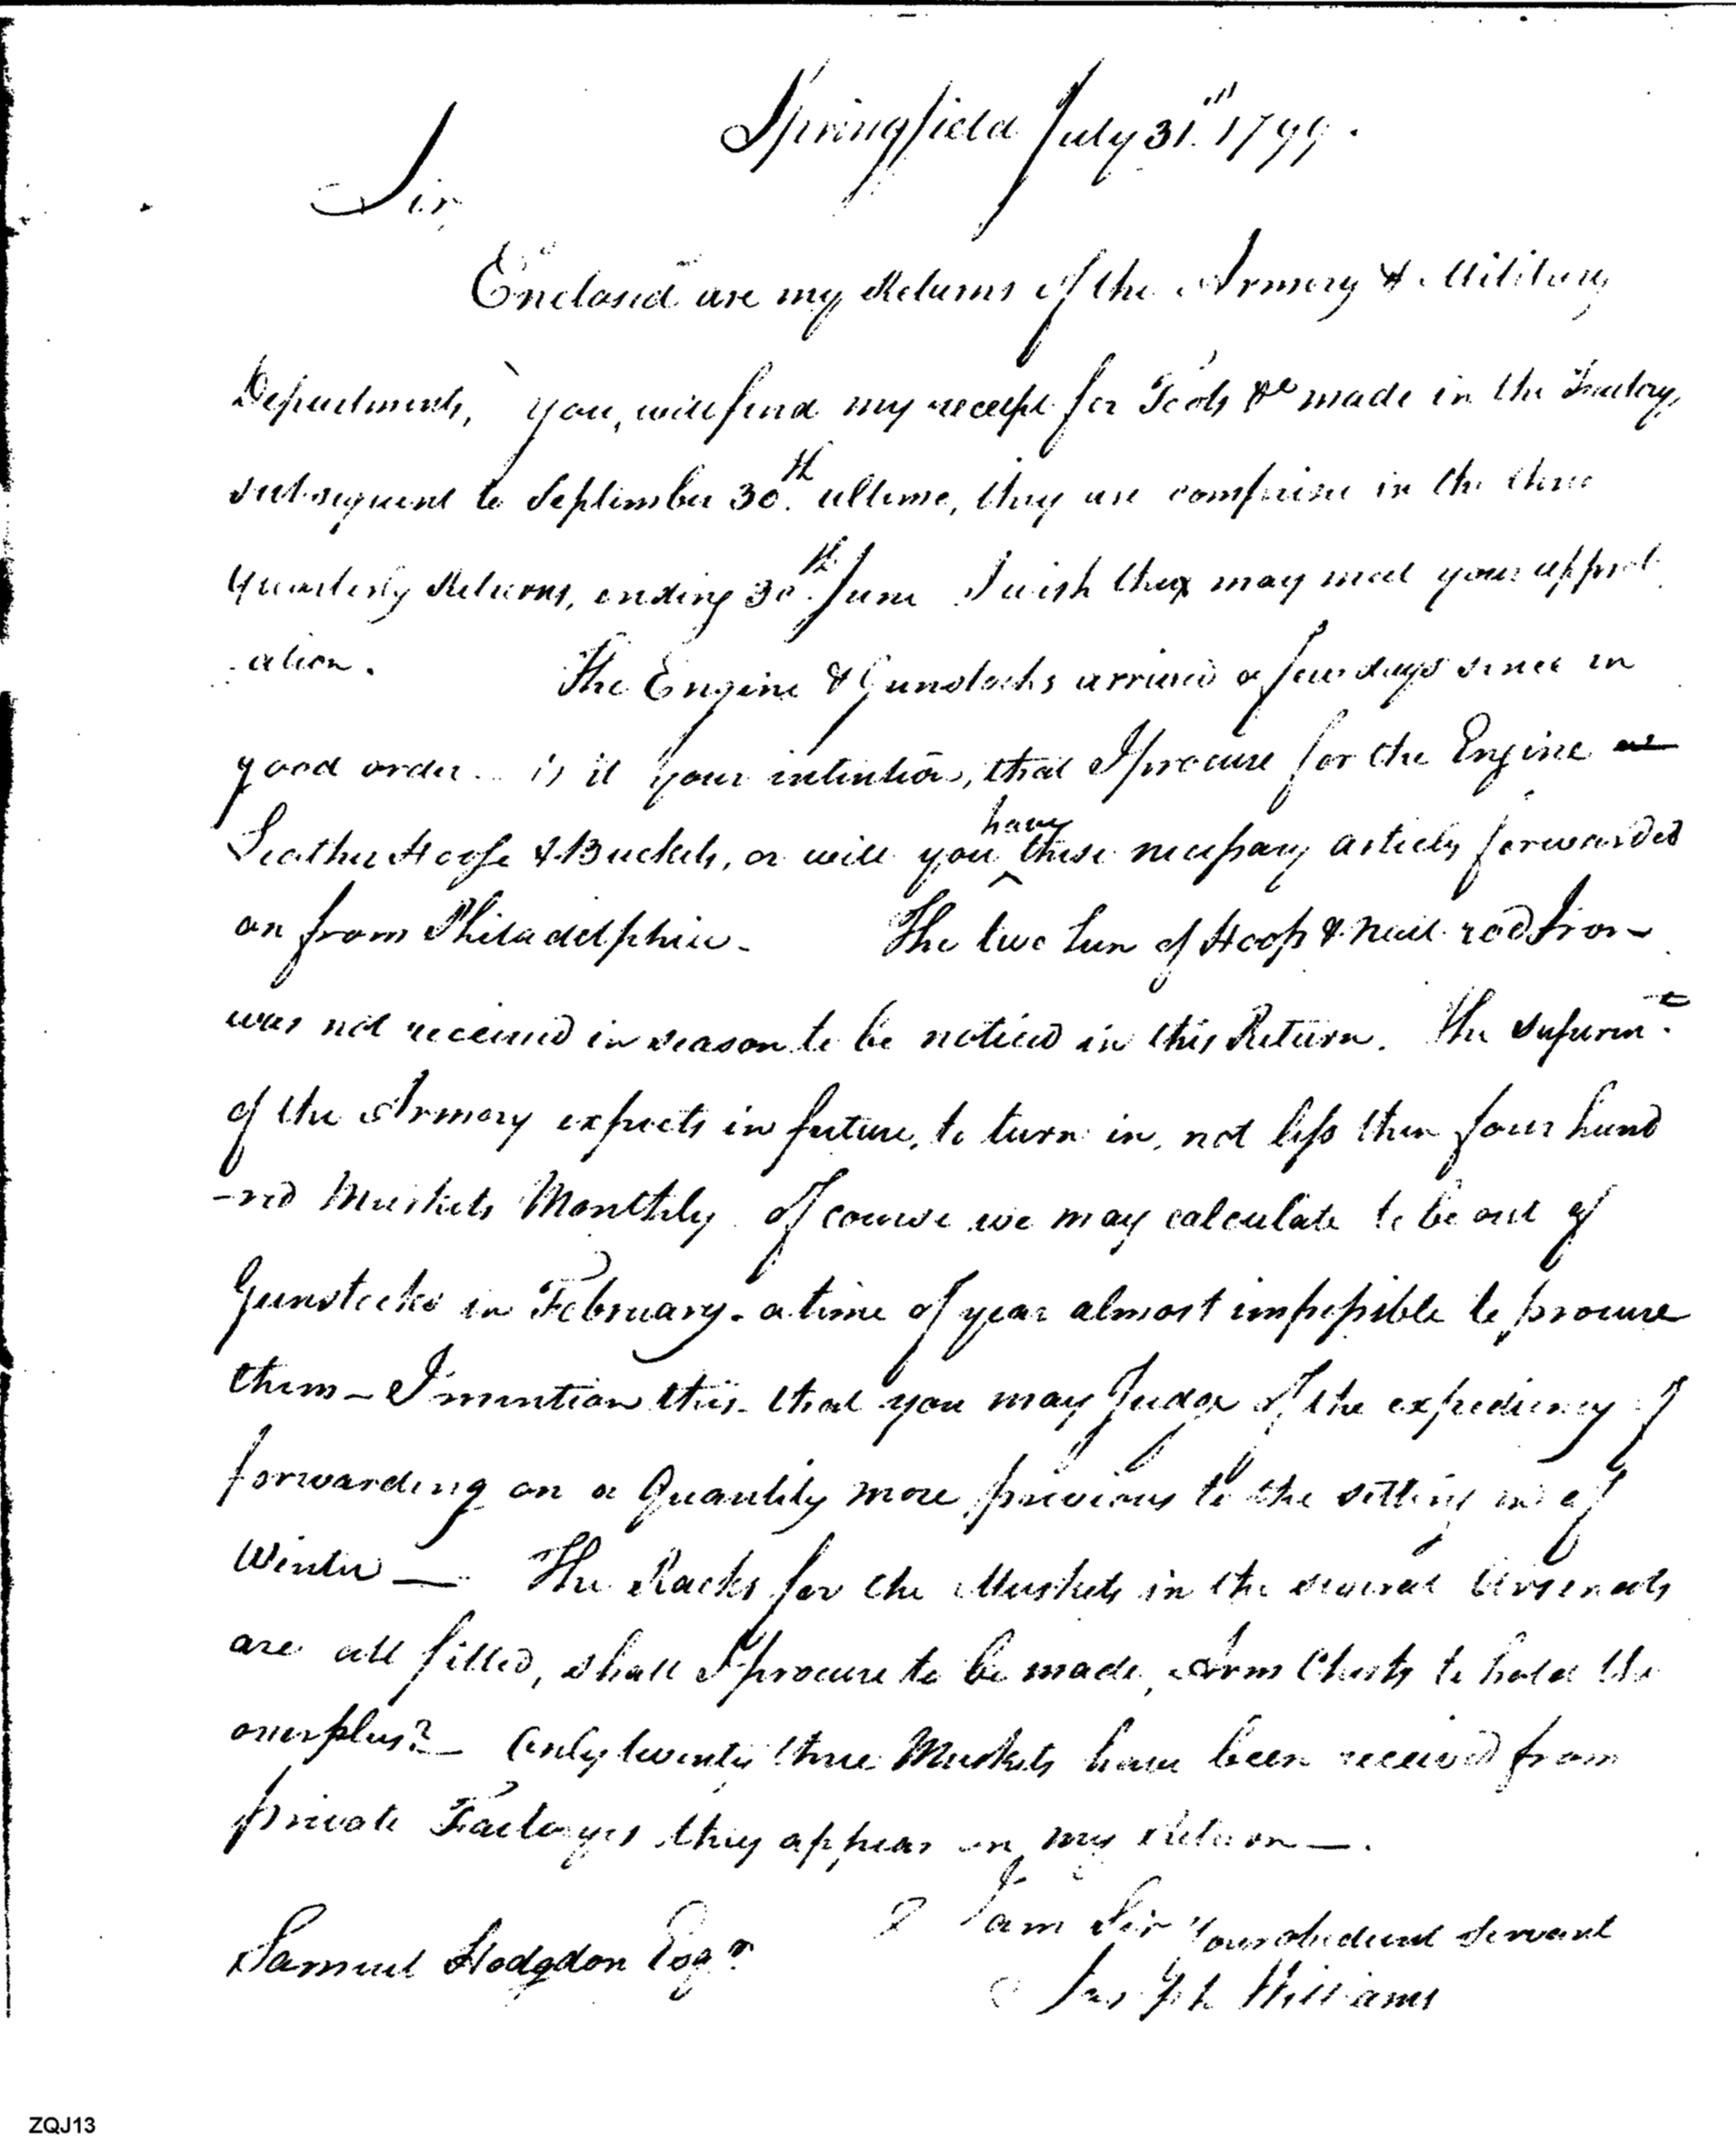 Springfield July 31st 1799.
Sir,
Enclosed are my Returns of the Armory & Military
Departments, you, will find my receipt for Tools &c made in the Factory,
subsequent to September 30th. ultimo, they are comprise in the three
Quarterly Returns, ending 30th. June I wish they may meet your approb
-ation. The Engine & Gunstocks arrived a few days since in
good order. is it your intention, that I procure for the Engine
Leather Hose & Buckets, or will you have these necessary articles forwarded
on from Philadelphia - The two tun of Hoop & nail rod Iron -
was not received in season to be noticed in this Return. The
of the Armory expects in future, to turn in, not less then four hund
-red Muskets Monthly of course we may calculate to be out of
Gunstocks in February - a time of year almost impossible to procure
them - I mention this - that you may Judge of the expediency of
forwarding on a Quantity more previous to the setting in of
Winter — The Racks for the Muskets in the several Arsenals
are all filled, shall I procure to be made, Arm Chests to hold the
overplus? - Only twenty three Muskets have been received from
private Factoryes they appear on my Return —.
I am Sir Your obedient servant
Samuel Hodgdon Esqr.
Joseph Williams
ZQJ13